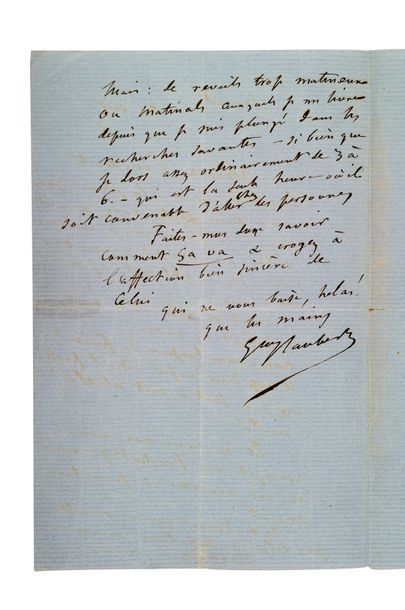 Mais : de réveils trop matineux
ou matinals auxquels je me livre
depuis que je suis plongé dans les
recherches savantes – si bien que
je dors assez ordinairement de 3 à
6. – qui est la seule heure – où il
soit convenable d'aller chez des personnes
Faites-moi donc savoir
comment ça va & croyez à
l'affection bien sincère de
Celui
qui ne vous baise, hélas!
que les mains
Gve Flaubert